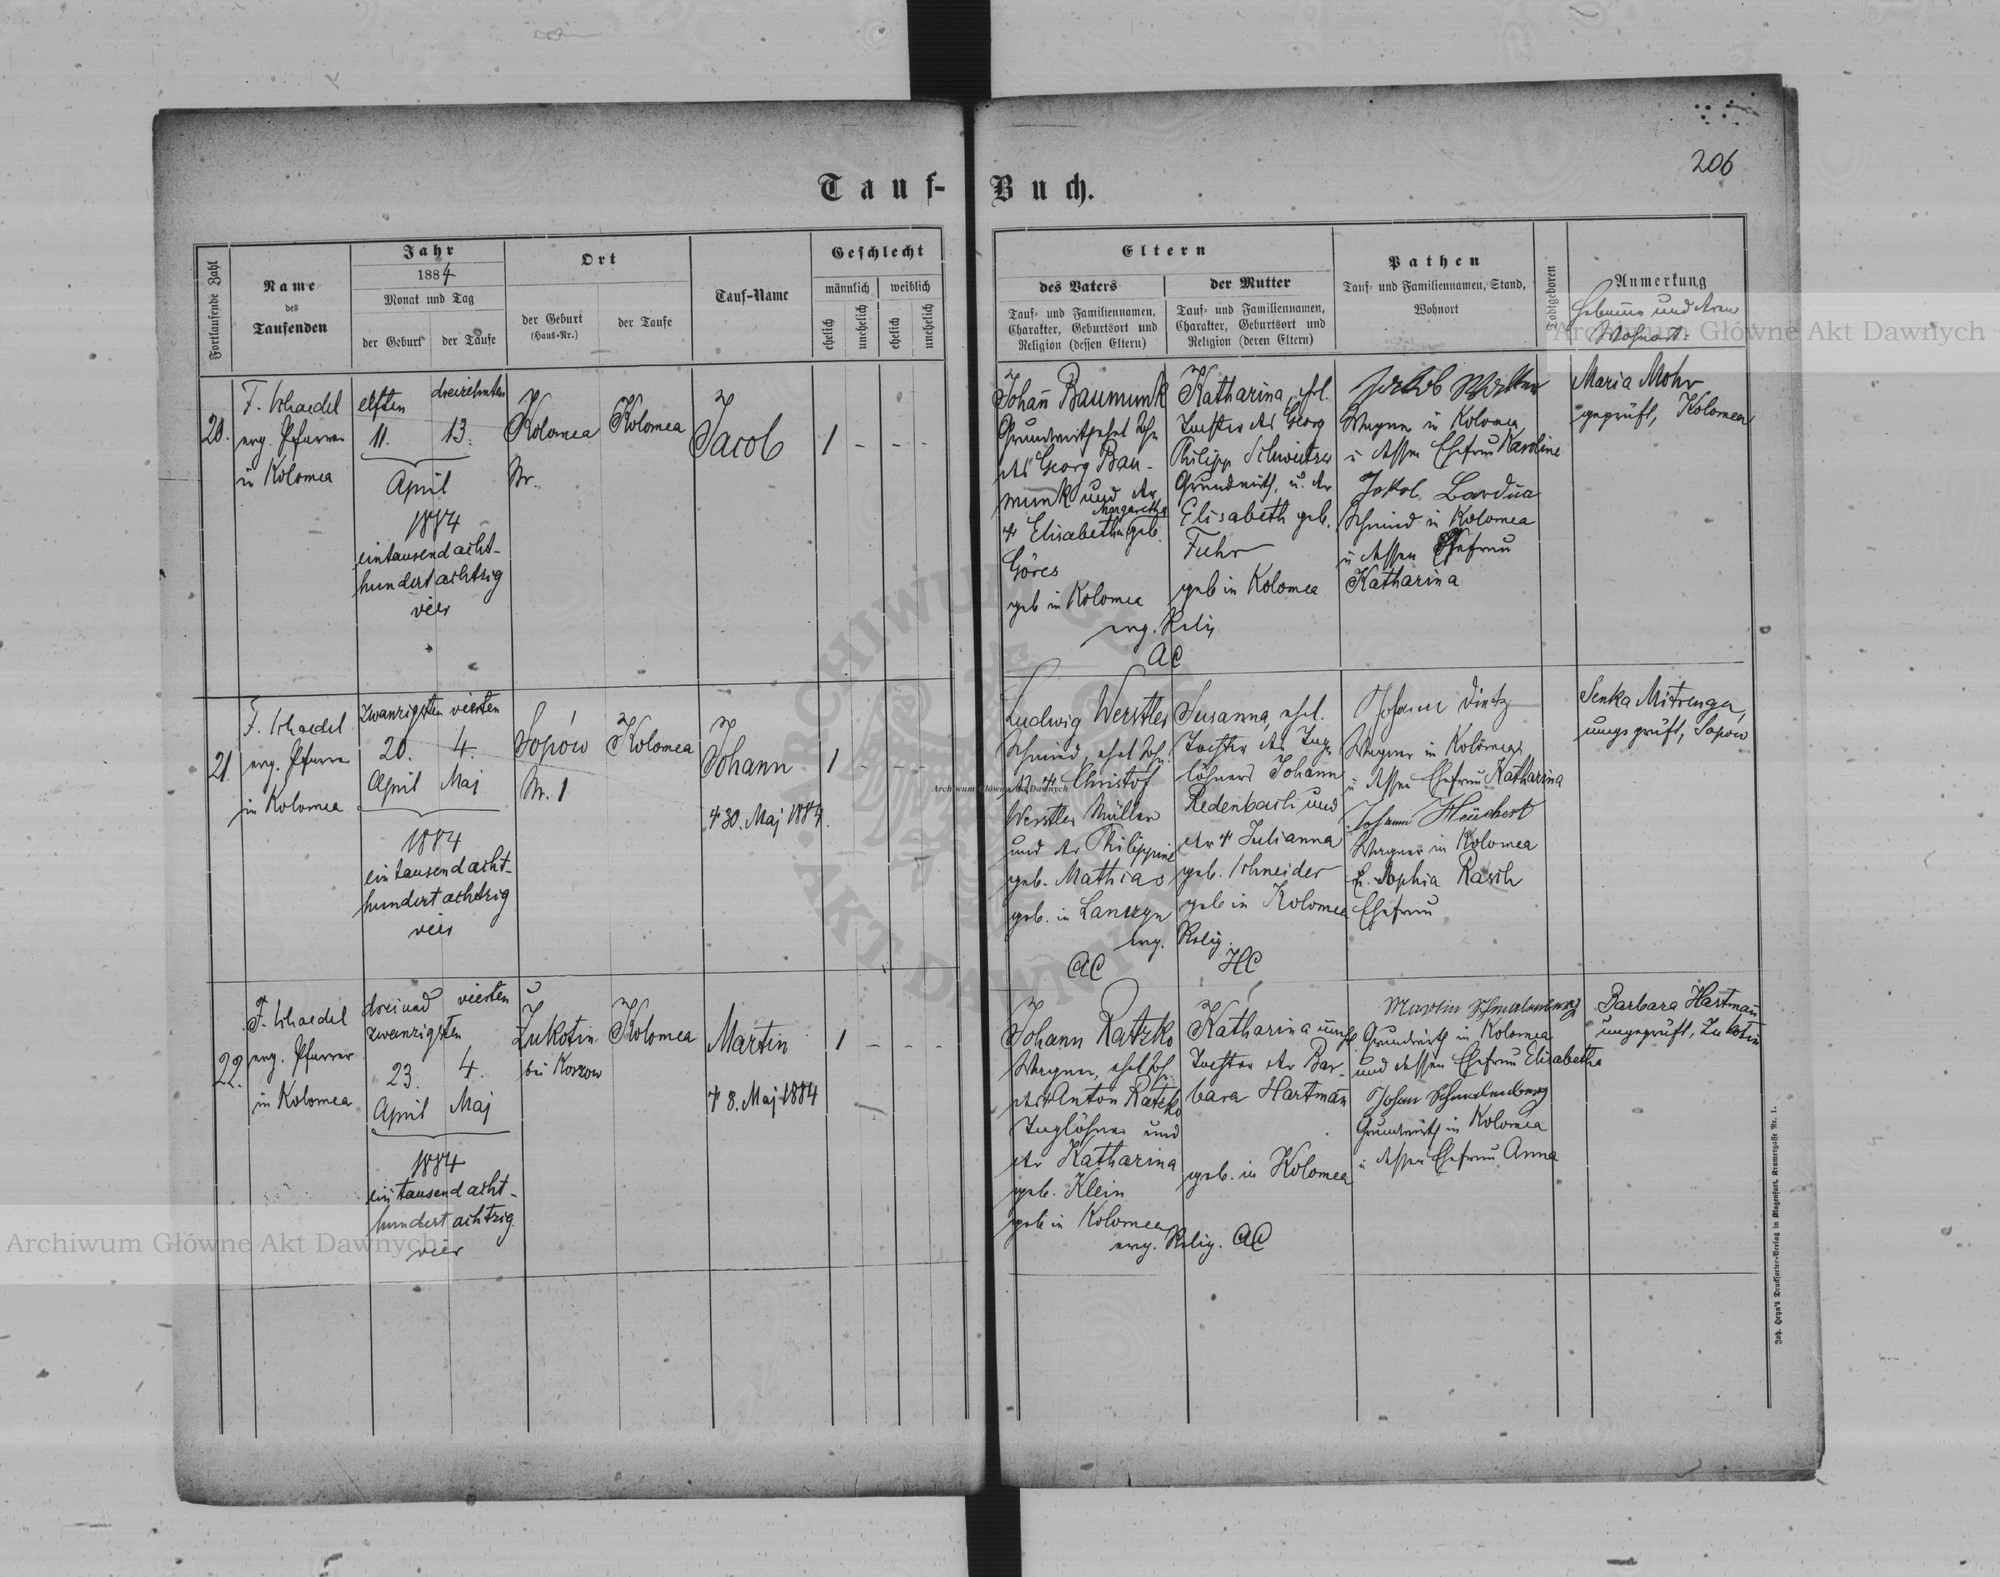 206
Tauf-Buch.
Fortlaufende Zahl
Name
des
Taufenden
Jahr
1884
Monat und Tag
der Geburt
der Taufe
Ort
der Geburt
(Haus-Nr.)
der Taufe
Tauf-Name
Geschlecht
männlich
weiblich
ehelich
unehelich
ehelich
unehelich
Eltern
des Vaters
Tauf- und Familiennamen,
Charakter, Geburtsort und
Religion (dessen Eltern)
der Mutter
Tauf- und Familiennamen,
Charakter, Geburtsort und
Religion (deren Eltern)
Pathen
Tauf- und Familiennamen, Stand,
Wohnort
Todtgeboren
Anmerkung
Hebamme und deren
Wohnort.
20.
F. Schaedel
evg. Pfarrer
in Kolomea
elften
11.
dreizehnten
13.
April
1884
eintausend acht-
hundert achtzig
vier
Kolomea
Nr.
Kolomea
Jacob
1 - - -
Johan̄ Baumunk
Grundwirth, ehel. Sohn
des Georg Bau-
munk und der
Margaretha
+ Elisabetha geb.
Göres
geb in Kolomea
Katharina, ehel.
Tochter des Georg
Philipp Schweitzer
Grundwirth, u. der
Elisabeth geb.
Fuhr
geb in Kolomea
evg. Relig
AC
Wagner in Kolomea
u dessen Ehefrau Karoline
Jakob Bardua
Schmied in Kolomea
u dessen Ehefrau
Katharina
Maria Mohr
geprüft, Kolomea
21.
F. Schaedel
evg. Pfarrer
in Kolomea
zwanzigsten
20.
April
vierten
4.
Maj
1884
eintausend acht-
hundert achtzig
vier
Sopów
Nr. 1
Kolomea
Johann
+ 30. Maj 1884.
1 - - -
Ludwig Werstler
Schmied, ehel. Sohn
d. + Christof
Werstler Müller
und der Philippine
geb. Mathias
geb. in Lanczyn
Susanna, ehel.
Tochter des Tag-
löhners Johann
Redenbach und
der + Julianna
geb. Schneider
geb in Kolomea
evg. Relig.
AC
HC
Johann Dietz
Wagner in Kolomea
u dessen Ehefrau Katharina
Johann Heuchert
Wagner in Kolomea
u. Sophia Rasch
Ehefrau
Senka Mitrenga,
ungeprüft, Sopow
22.
F. Schaedel
evg. Pfarrer
in Kolomea
drei und
zwanzigsten
23.
April
vierten
4.
Maj
1884
eintausend acht-
hundert achtzig
vier
Zukotin
bei Korzow
Kolomea
Martin
+ 8. Maj 1884
1 - - -
Johann Ratzko
Wagner, ehel. Sohn
des + Anton Ratzko
Taglöhner und
der Katharina
geb. Klein
geb in Kolomea
Katharina unehl
Tochter der Bar-
bara Hartman̄
geb. in Kolomea
evg. Relig. AC
Martin Schmalenberg
Grundwirth in Kolomea
und dessen Ehefrau Elisabetha
Johann Schmalenberg
Grundwirth in Kolomea
u dessen Ehefrau Anna
Barbara Hartman̄
ungeprüft, Zukotin
Joh. Heyn's Drucksorten-Verlag in Klagenfurt, Kramergasse Nr. 1.
Archiwum Główne Akt Dawnych
Archiwum Główne Akt Dawnych
Archiwum Główne Akt Dawnych